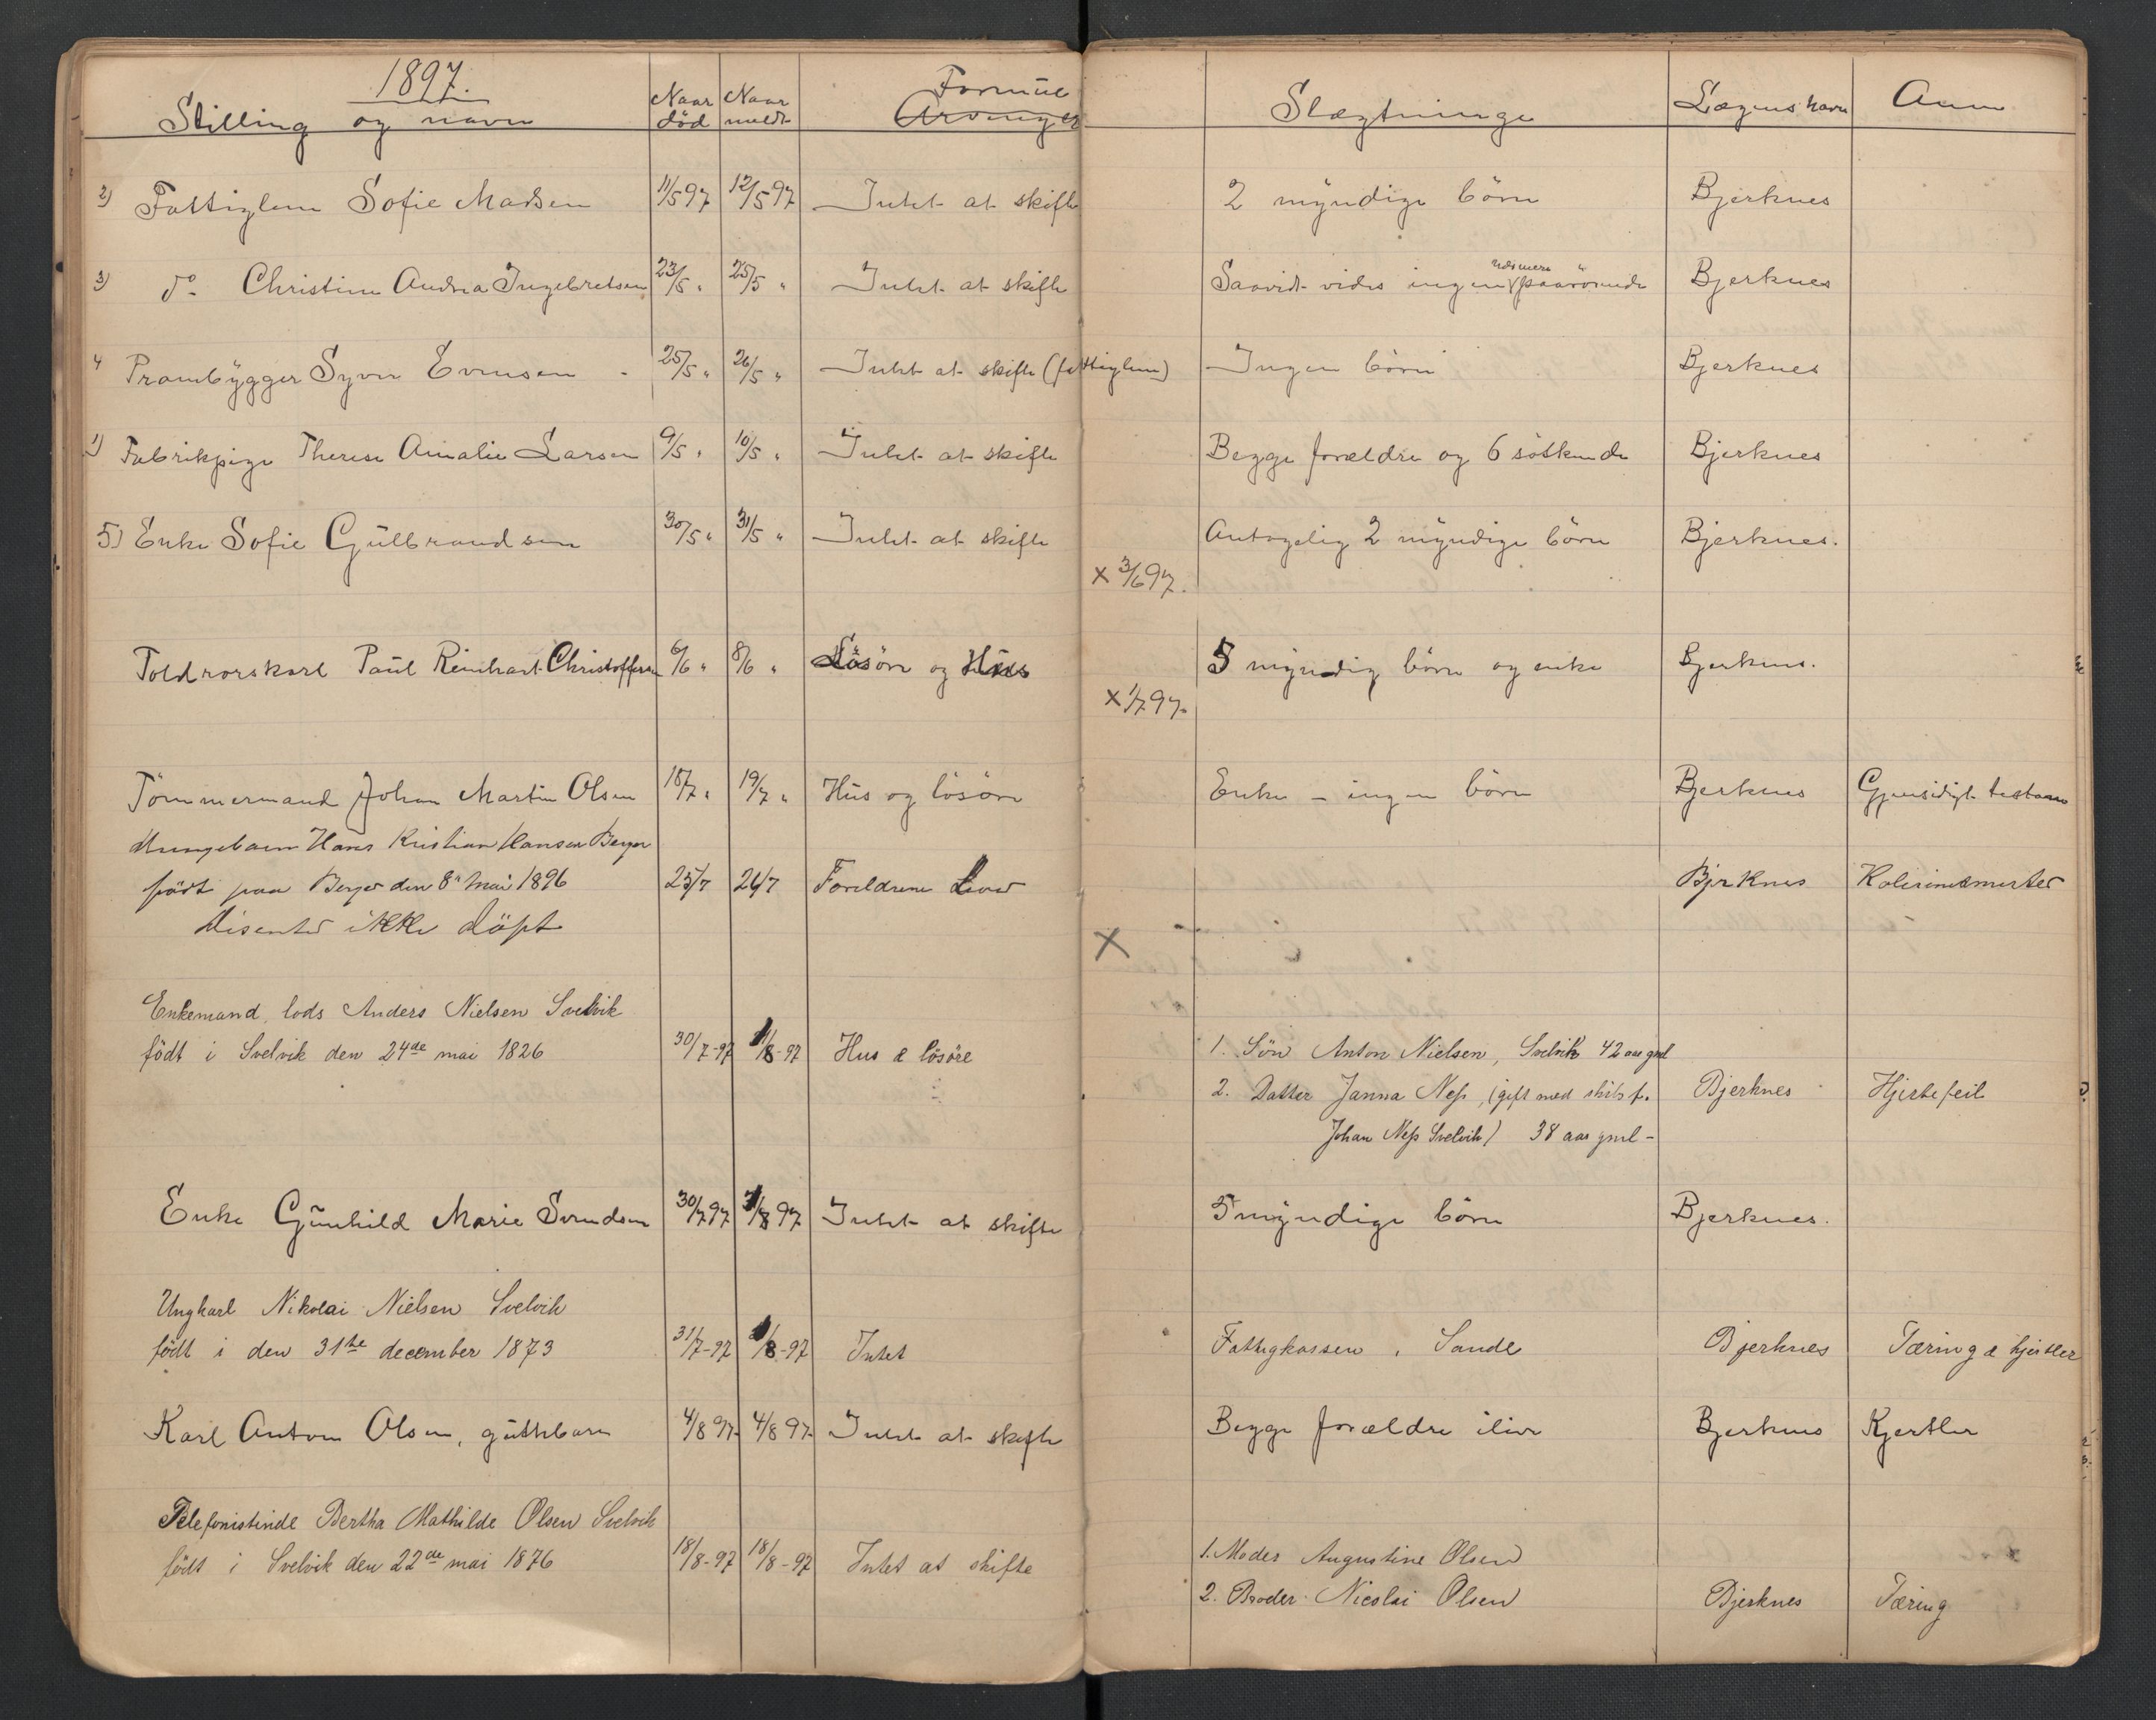 1897.
Stilling og navn | Naar död | Naar meldt | Formue Arvinger | Slægtninge | Lægens navn | Anm
2) Fattiglem Sofie Madsen | 11/5 97 | 12/5 97 | Intet at skifte | 2 myndige börn | Bjerknes
3) do Christine Andrea Ingebretsen | 23/5 " | 25/5 " | Intet at skifte | Saavidt vides ingen nærmere paarörende | Bjerknes
4 Prambygger Syver Evensen | 25/5 " | 26/5 " | Intet at skifte (fattiglem) | Ingen börn | Bjerknes
1) Fabrikpige Therese Amalie Larsen | 9/5 " | 10/5 " | Intet at skifte | Begge forældre og 6 söskende | Bjerknes
5) Enke Sofie Gulbrandsen | 30/5 " | 31/5 " | Intet at skifte | Antagelig 2 myndige börn | Bjerknes.
x 3/6 97.
Toldrorskarl Paul Reinhart Christoffersen | 6/6 " | 8/6 " | Lösöre og Hus | 5 myndig börn og enke | Bjerknes.
x 1/7 97.
Tömmermand Johan Martin Olsen | 18/7 " | 19/7 " | Hus og lösöre | Enke - ingen börn | Bjerknes | Gjensidigt testam
Hans Kristian Hansen Berger
födt paa Berger den 8de Mai 1896 | 25/7 | 26/7 | Foreldrene Lever | Bjerknes
Disenter ikke döpt
x
Enkemand, lods Anders Nielsen Svelvik
födt i Svelvik den 24de mai 1826 | 30/7-97 | 1/8-97 | Hus & lösöre | 1. Sön Anton Nielsen, Svelvik 42 aar gml
2. Datter Janna Ness, (gift med skibsf. | Bjerknes | Hjertefeil
Johan Ness Svelvik) 38 aar gml -
Enke Gunhild Marie Svendsen | 30/7 97 | 1/8 97 | Intet at skifte | 5 myndige börn | Bjerknes.
Ungkarl Nikolai Nielsen Svelvik
födt i den 31te december 1873 | 31/7-97 | 1/8-97 | Intet | Fattigkassen, Sande | Bjerknes | Tæring & kjertler
Karl Anton Olsen, guttebarn | 4/8 97 | 4/8 97 | Intet at skifte | Begge forældre ilive | Bjerknes | Kjertler
Telefonistinde Bertha Mathilde Olsen Svelvik
födt i Svelvik den 22de mai 1876 | 18/8-97 | 18/8-97 | Intet at skifte | 1. Moder Augustine Olsen
2. Broder Nicolai Olsen | Bjerknes | Tæring